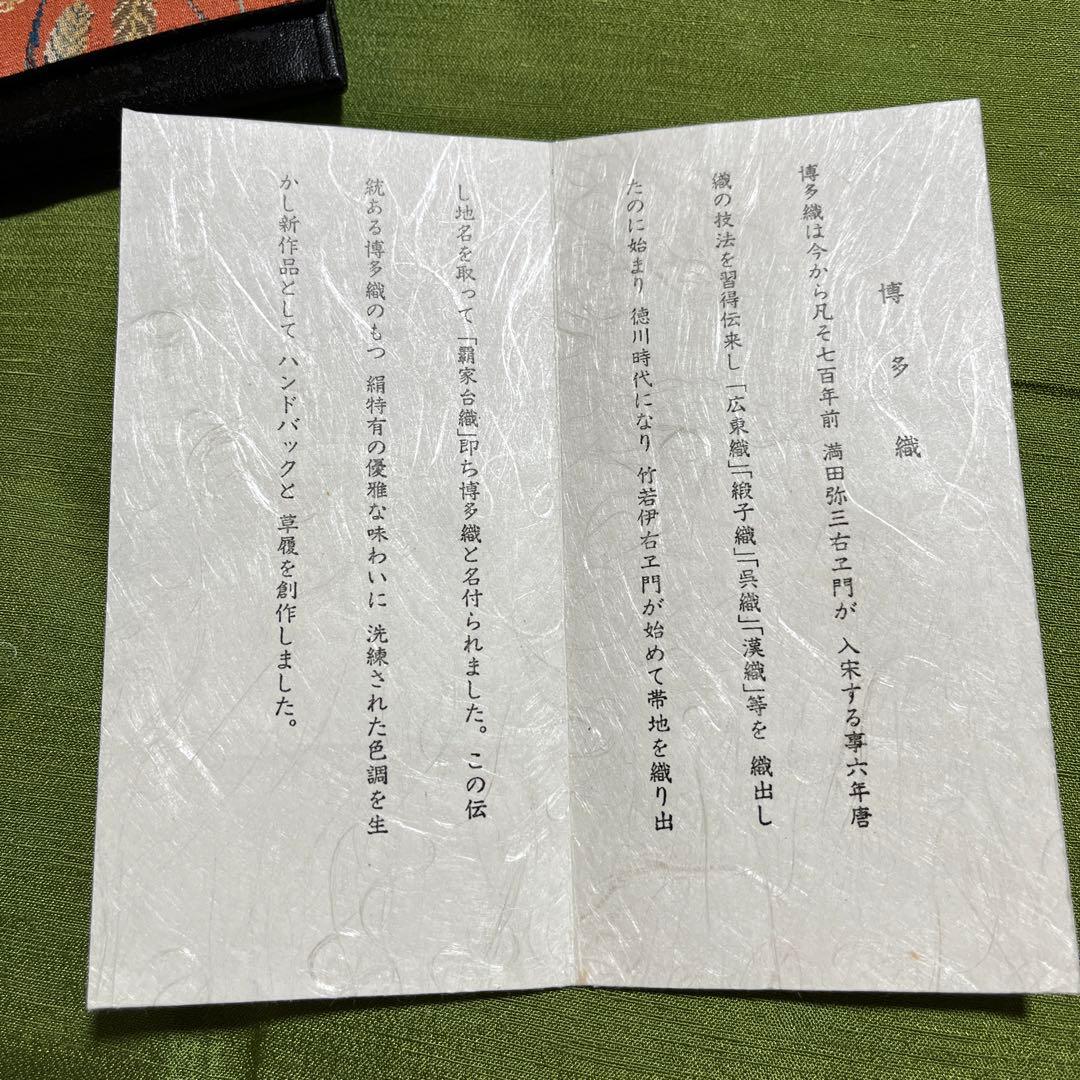 博多織
博多織は今から凡そ七百年前 満田弥三右ヱ門が 入宋する事六年唐
織の技法を習得伝来し「広東織」「緞子織」「呉織」「漢織」等を 織出し
たのに始まり 徳川時代になり 竹若伊右ヱ門が始めて帯地を織り出
し地名を取って「覇家台織」即ち博多織と名付られました。この伝
統ある博多織のもつ 絹特有の優雅な味わいに 洗練された色調を生
かし新作品として ハンドバックと 草履を創作しました。